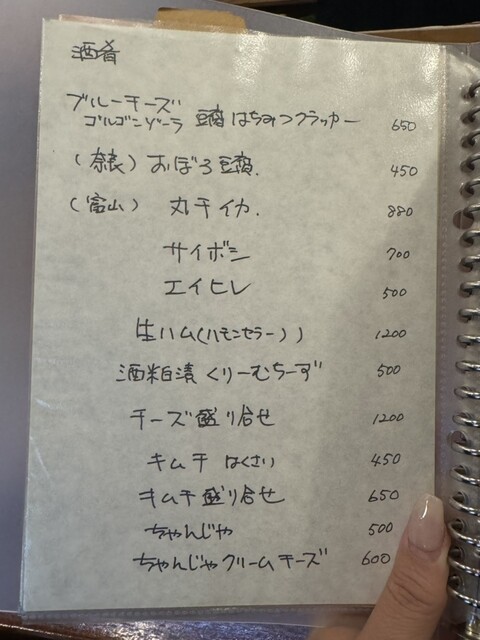 酒肴
ブルーチーズ
ゴルゴンゾーラ 豆腐はちみつクラッカー 650
(奈良) おぼろ豆腐. 450
(富山) 丸干イカ. 880
サイボシ 700
エイヒレ 500
生ハム(ハモンセラー)) 1200
酒粕漬くりーむちーず 500
チーズ盛り合せ 1200
キムチ はくさい 450
キムチ盛り合せ 650
ちゃんじゃ 500
ちゃんじゃクリームチーズ 600